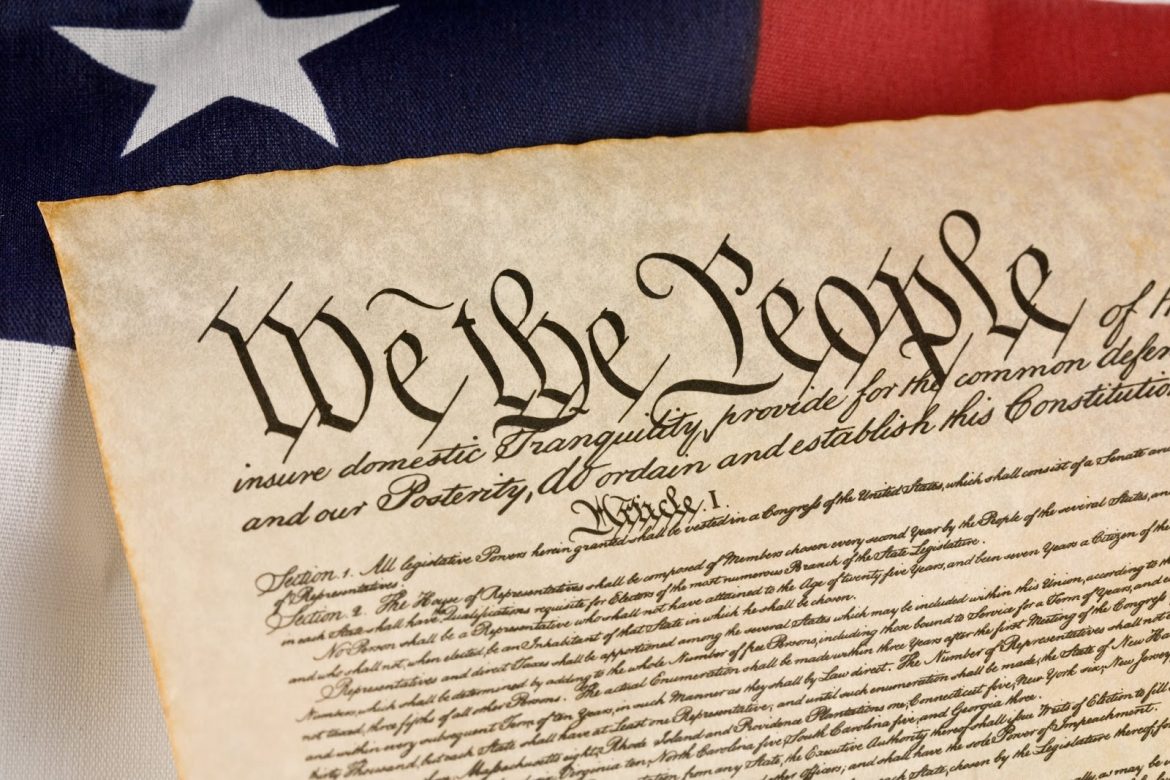 We the People of th
insure domestic Tranquility, provide for the common defen
and our Posterity, do ordain and establish this Constitutio
Article. I.
Section. 1. All legislative Powers herein granted shall be vested in a Congress of the United States, which shall consist of a Senate an
of Representatives.
Section. 2. The House of Representatives shall be composed of Members chosen every second Year by the People of the several States, an
in each State shall have the Qualifications requisite for Electors of the most numerous Branch of the State Legislature.
No Person shall be a Representative who shall not have attained to the Age of twenty five Years, and been seven Years a Citizen of the
and who shall not, when elected, be an Inhabitant of that State in which he shall be chosen.
Representatives and direct Taxes shall be apportioned among the several States which may be included within this Union, according to th
Numbers, which shall be determined by adding to the whole Number of free Persons, including those bound to Service for a Term of Years, and
not taxed, three fifths of all other Persons. The actual Enumeration shall be made within three Years after the first Meeting of the Congress
and within every subsequent Term of ten Years, in such Manner as they shall by Law direct. The Number of Representatives shall not
thirty Thousand, but each State shall have at Least one Representative; and until such enumeration shall be made, the State of New Ham
Massachusetts eight, Rhode Island and Providence Plantations one, Connecticut five, New York six, New Jersey
Virginia ten, North Carolina five, South Carolina five, and Georgia three.
from any State, the Executive Authority thereof shall issue Writs of Election to fill
other Officers; and shall have the sole Power of Impeachment.
each State, chosen by the Legislature thereof, fo